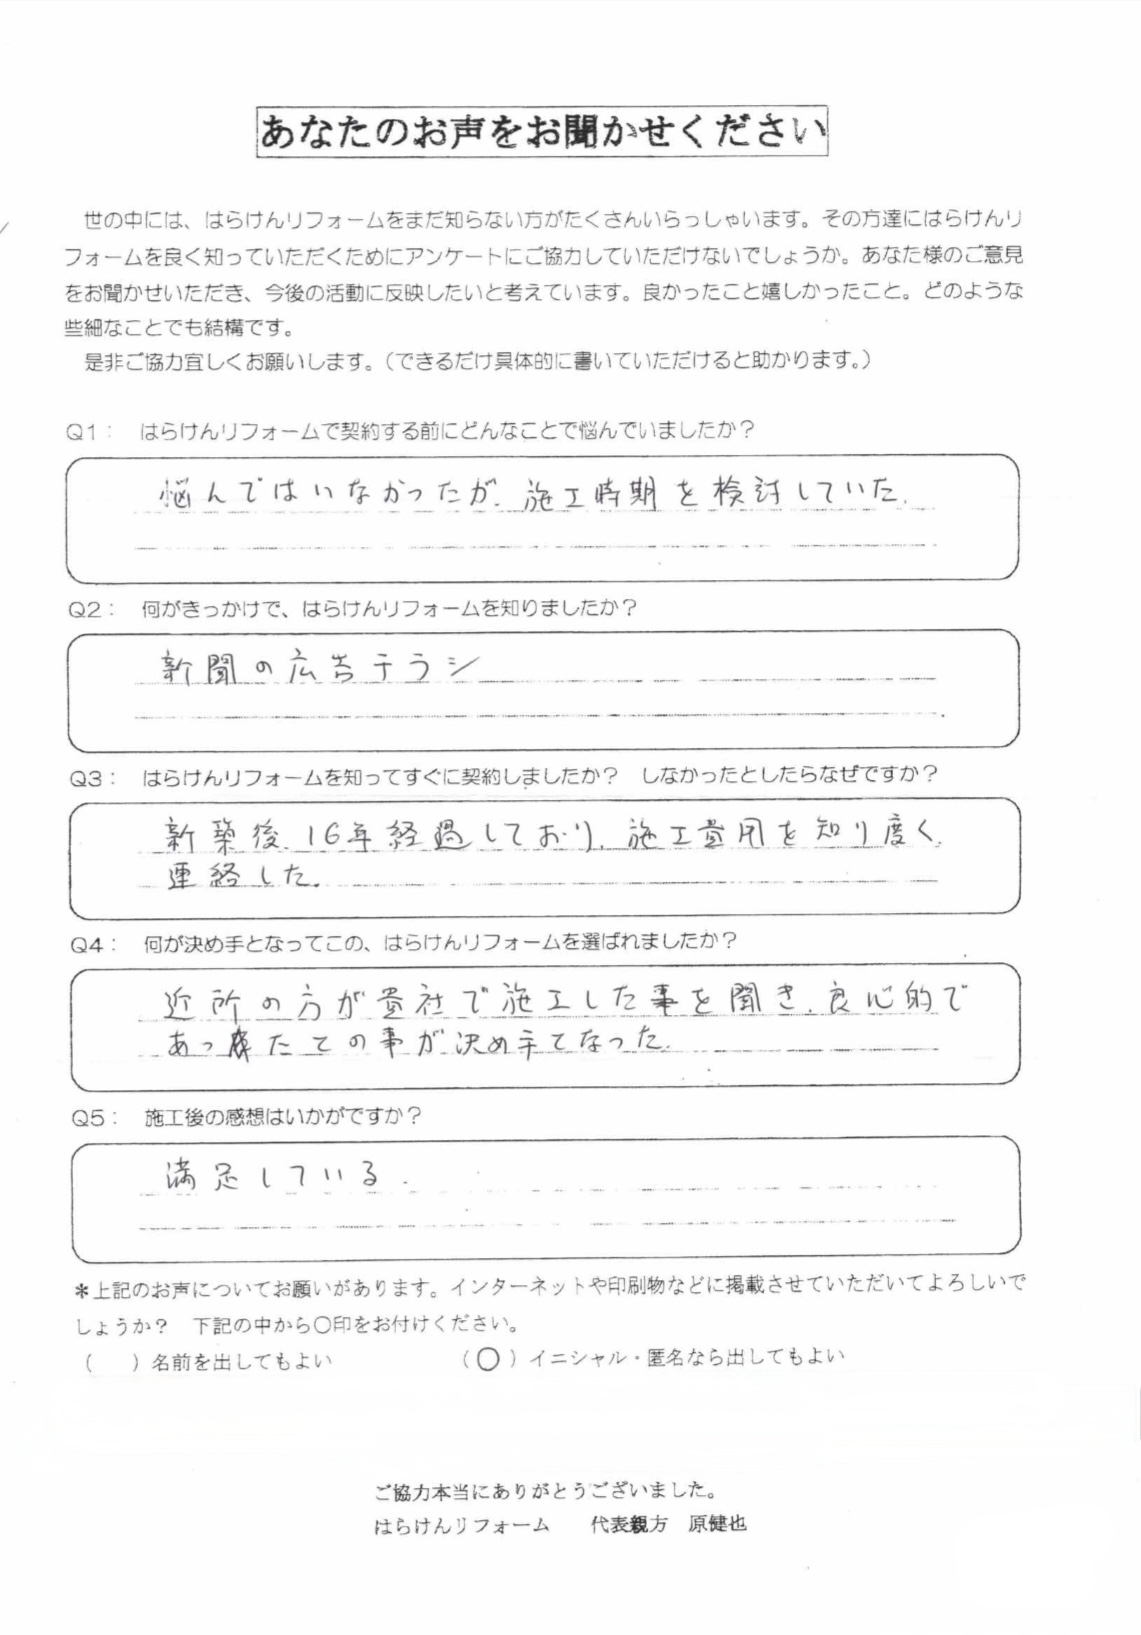 あなたのお声をお聞かせください
世の中には、はらけんリフォームをまだ知らない方がたくさんいらっしゃいます。その方達にはらけんリ
フォームを良く知っていただくためにアンケートにご協力していただけないでしょうか。あなた様のご意見
をお聞かせいただき、今後の活動に反映したいと考えています。良かったこと嬉しかったこと。どのような
些細なことでも結構です。
是非ご協力宜しくお願いします。（できるだけ具体的に書いていただけると助かります。）
Q1： はらけんリフォームで契約する前にどんなことで悩んでいましたか？
悩んではいなかったが、施工時期を検討していた。
Q2： 何がきっかけで、はらけんリフォームを知りましたか？
新聞の広告チラシ
Q3： はらけんリフォームを知ってすぐに契約しましたか？ しなかったとしたらなぜですか？
新築後、16年経過しており、施工費用を知り度く
連絡した。
Q4： 何が決め手となってこの、はらけんリフォームを選ばれましたか？
近所の方が貴社で施工した事を聞き、良心的で
あったとの事が決め手となった。
Q5： 施工後の感想はいかがですか？
満足している。
＊上記のお声についてお願いがあります。インターネットや印刷物などに掲載させていただいてよろしいで
しょうか？ 下記の中から〇印をお付けください。
（ ）名前を出してもよい （〇）イニシャル・匿名なら出してもよい
ご協力本当にありがとうございました。
はらけんリフォーム 代表親方 原健也